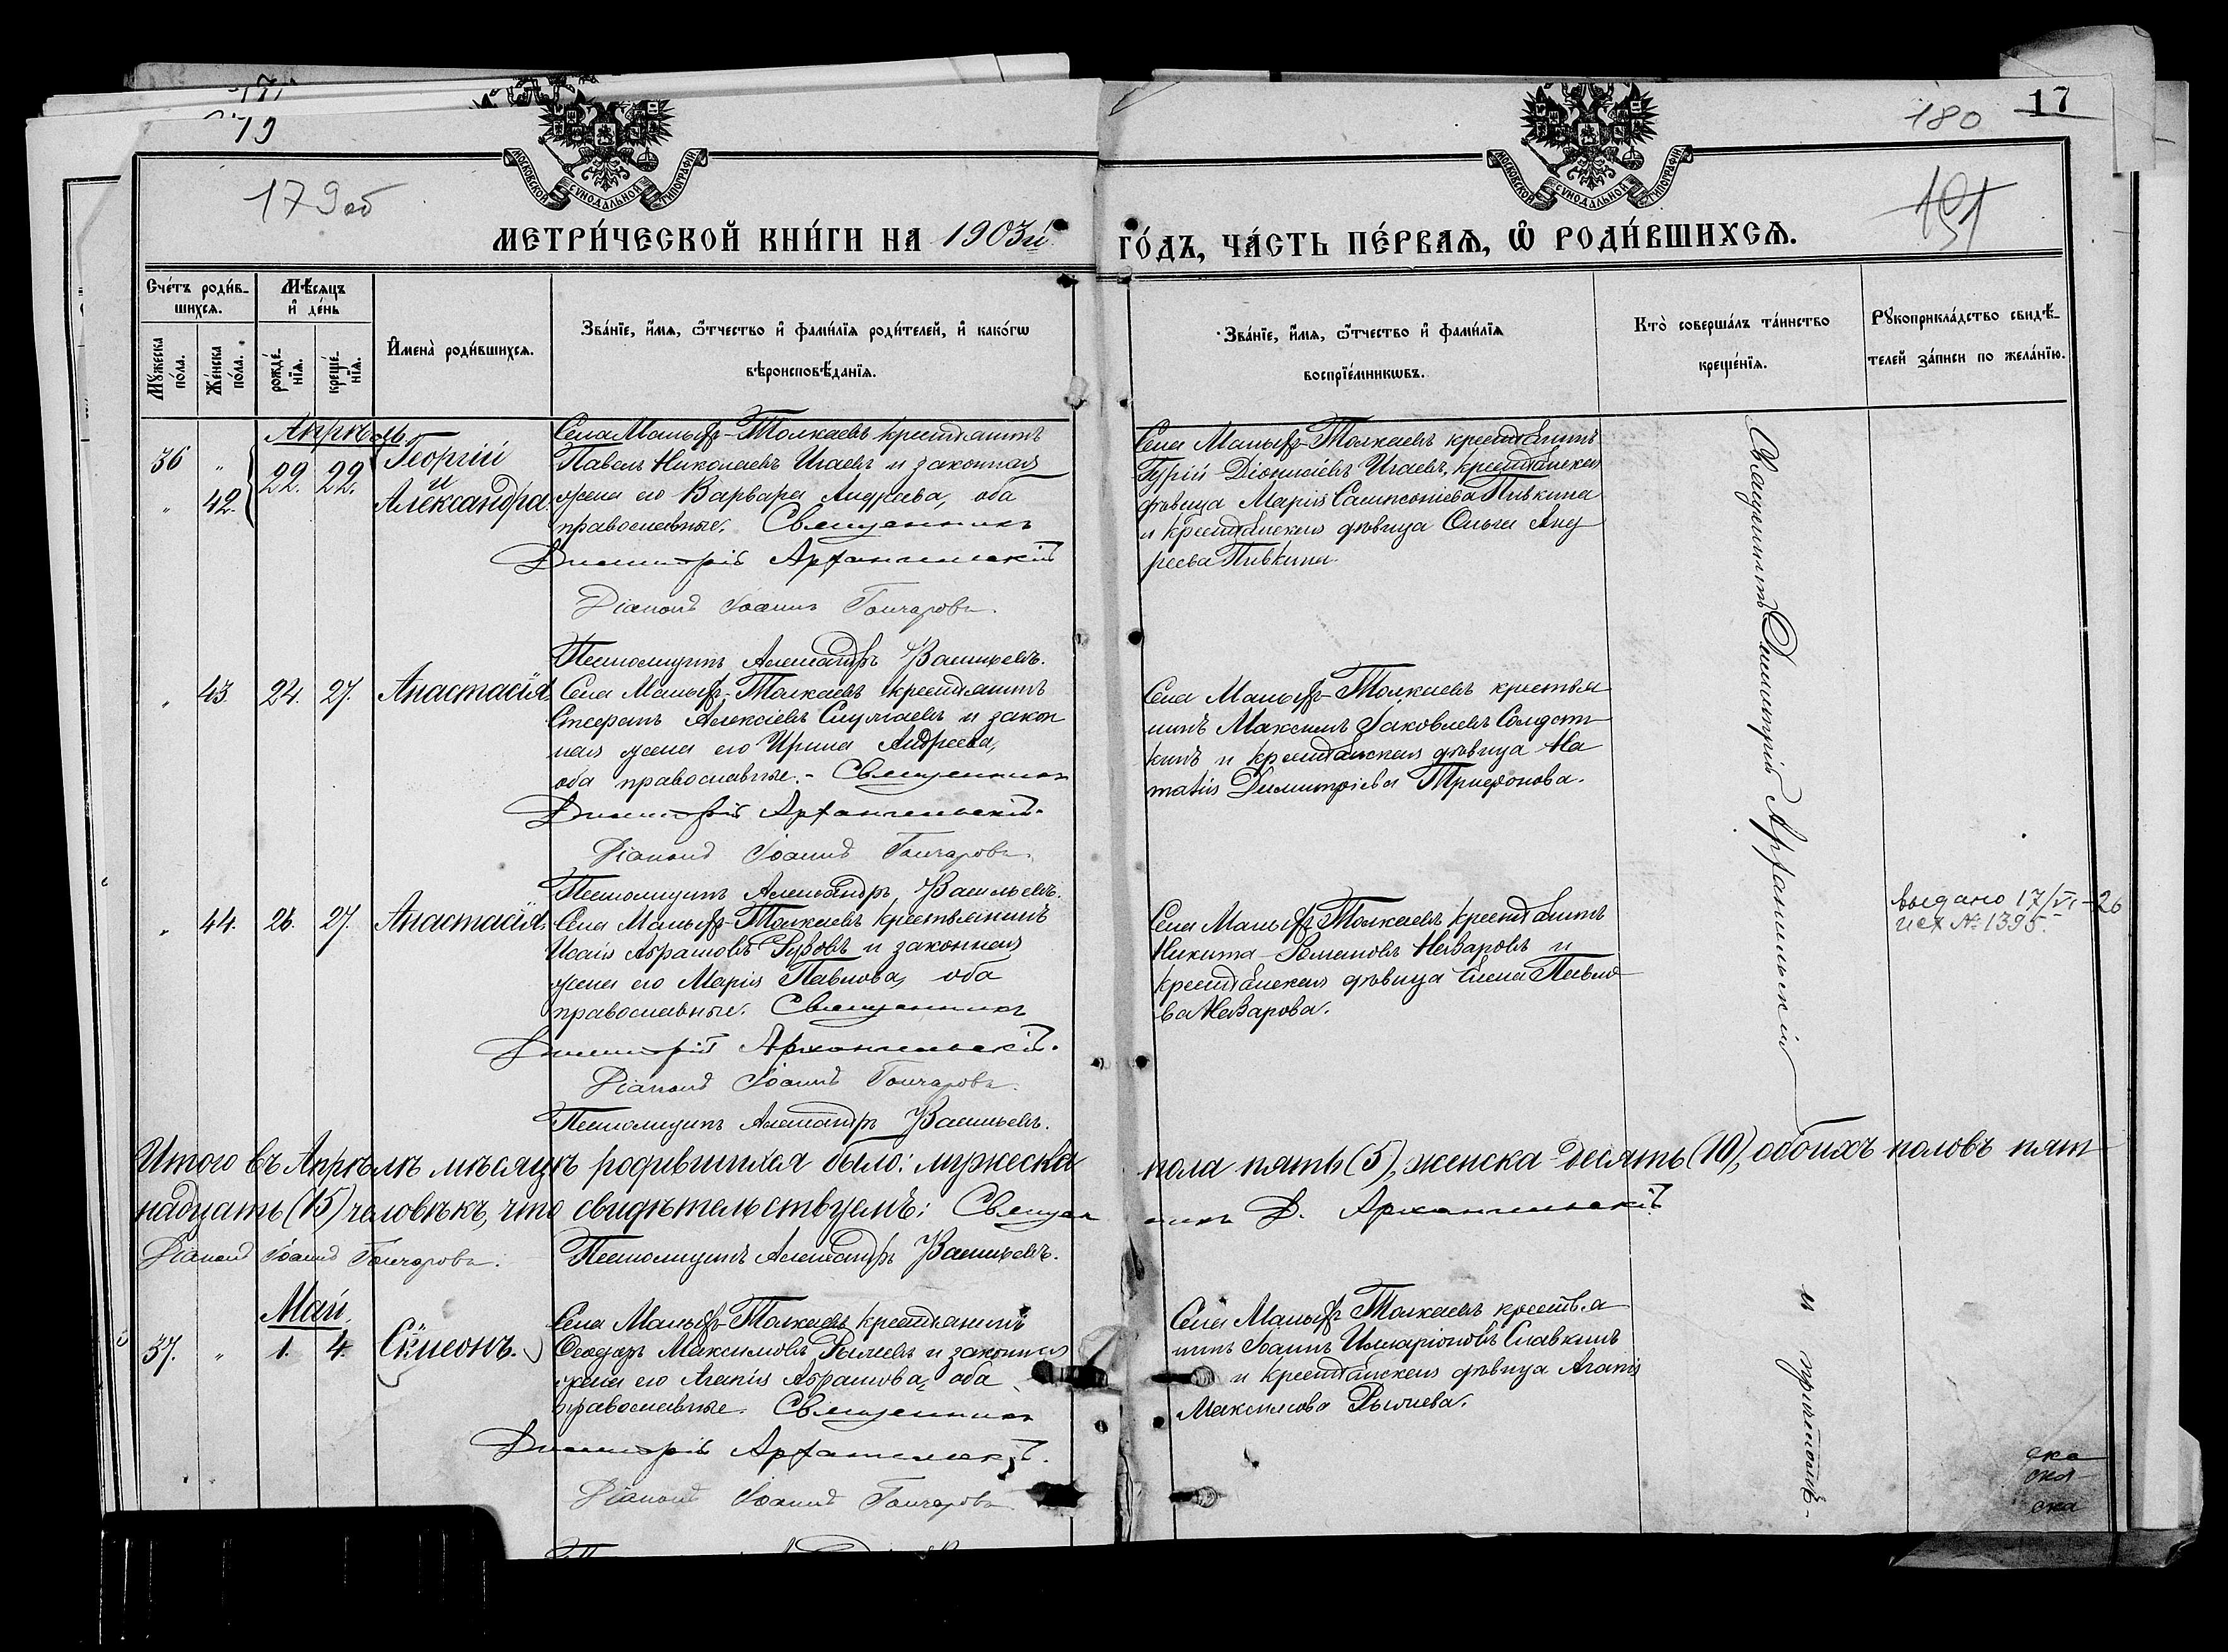 179об
19
180 17
191
МОСКОВСКОЙ СУНОДАЛЬНОЙ ТИПОГРАФІИ
МОСКОВСКОЙ СУНОДАЛЬНОЙ ТИПОГРАФІИ
МЕТРИ́ЧЕСКОЙ КНИ́ГИ НА 1903й ГО́ДЪ, ЧА́СТЬ ПЕ́РВАѦ, Ѿ РОДИ́ВШИХСѦ.
Сче́тъ роди́в-
шихсѧ.
Мꙋ́жеска по́ла.
Же́нска по́ла.
Мѣ́сѧцъ
и҆ де́нь
рожде́-
нїѧ.
креще́-
нїѧ.
И҆мена̀ роди́вшихсѧ.
Зва́нїе, и҆́мѧ, ѻ҆́тчество и҆ фами́лїѧ роди́телей, и҆ како́гѡ
вѣроисповѣ́данїѧ.
Зва́нїе, и҆́мѧ, ѻ҆́тчество и҆ фами́лїѧ
воспрїе́мникѡвъ.
Кто̀ соверша́лъ та́инство
креще́нїѧ.
Рꙋкоприкла́дство свидѣ́-
телей за́писи по жела́нїю.
Апрѣль
36 "
" 42.
22. 22.
22. 22.
Георгій
и
Александра.
Села Малыхъ-Толкаевъ крестьянинъ
Павелъ Николаевъ Игаевъ и законная
жена его Варвара Андреева, оба
православные. Священникъ
Димитрій Архангельскій
Діаконъ Іоаннъ Гончаровъ.
Псаломщикъ Александръ Васильевъ.
Села Малыхъ-Толкаевъ крестьянинъ
Гурій Діонисіевъ Игаевъ, крестьянская
дѣвица Марія Сампсоніева Пивкина
и крестьянская дѣвица Ольга Анд
реева Пивкина.
Священникъ Димитрій Архангельскій
" 43. 24. 27. Анастасія.
Села Малыхъ-Толкаевъ крестьянинъ
Стефанъ Алексіевъ Слугаевъ и закон
ная жена его Ирина Андреева,
оба православные. - Священникъ
Димитрій Архангельскій.
Діаконъ Іоаннъ Гончаровъ.
Псаломщикъ Александръ Васильевъ.
Села Малыхъ-Толкаевъ крестья
нинъ Максимъ Іаковлевъ Солдат
кинъ и крестьянская дѣвица На
талія Димитріева Трифонова.
" 44. 26. 27. Анастасія.
Села Малыхъ-Толкаевъ крестьянинъ
Исаія Абрамовъ и законная
жена его Марія Павлова, оба
православные. Священникъ
Димитрій Архангельскій.
Діаконъ Іоаннъ Гончаровъ.
Псаломщикъ Александръ Васильевъ.
Села Малыхъ-Толкаевъ крестьянинъ
Никита Романовъ Назаровъ и
крестьянская дѣвица Елена Павло
ва Назарова.
выдано 17/VI-26
исх № 1395.
Итого въ Апрѣлѣ мѣсяцѣ родившихся было: мужеска пола пять (5), женска десять (10), обоихъ половъ пят-
надцать (15) человѣкъ, что свидѣтельствуемъ: Священ никъ Д. Архангельскій
Діаконъ Іоаннъ Гончаровъ. Псаломщикъ Александръ Васильевъ.
Май.
37. " 1. 4. Сѵмеонъ.
Села Малыхъ-Толкаевъ крестьянинъ
Ѳеодоръ Максимовъ Рычевъ и законная
жена его Агапія Абрамова, оба
православные. Священникъ
Димитрій Архангельскій.
Діаконъ Іоаннъ Гончаровъ
Села Малыхъ-Толкаевъ крестья
нинъ Іоаннъ Илларіоновъ Славкинъ
и крестьянская дѣвица Агапія
Максимова Рычева.
и причтомъ
ска
ская
ска